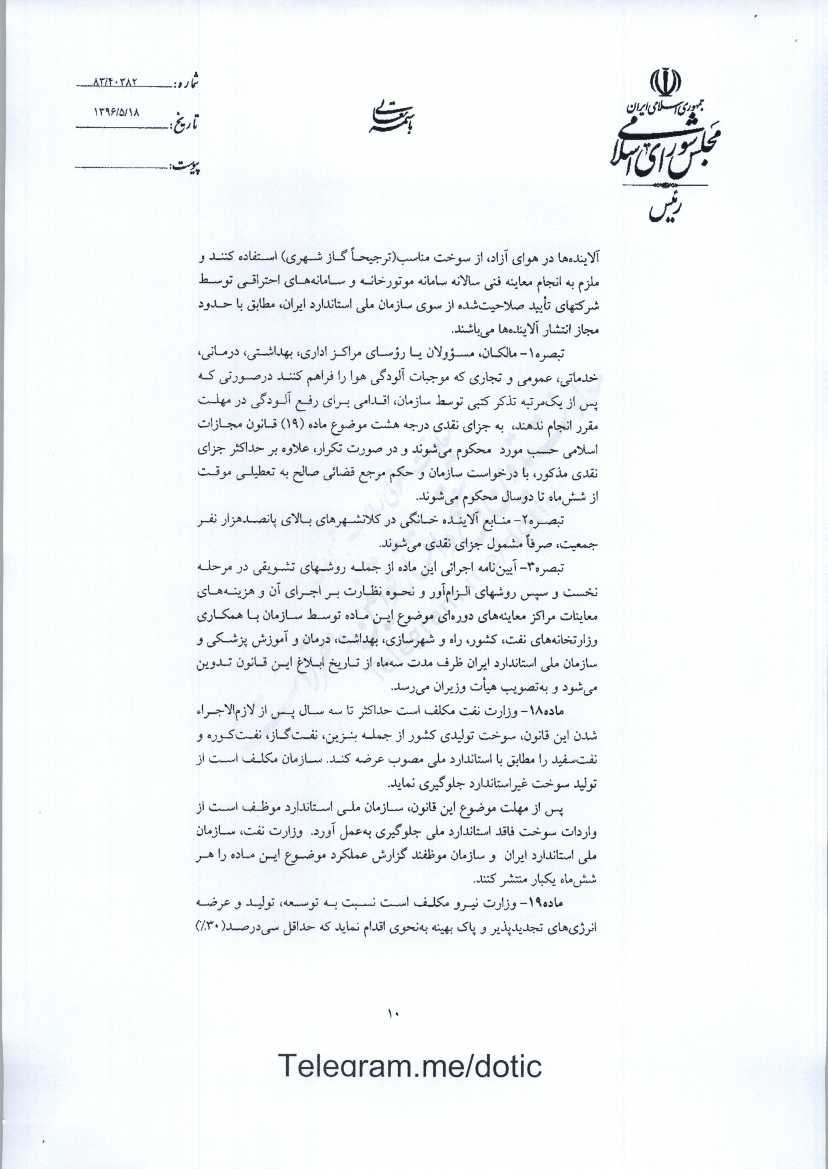 جمهوری اسلامی ایران
مجلس شورای اسلامی
رئیس
باسمه تعالی
شماره: ۸۳/۴۰۳۸۲
تاریخ: ۱۳۹۶/۵/۱۸
پیوست:
آلاینده‌ها در هوای آزاد، از سوخت مناسب(ترجیحاً گاز شهری) استفاده کنند و
ملزم به انجام معاینه فنی سالانه سامانه موتورخانه و سامانه‌های احتراقی توسط
شرکتهای تأیید صلاحیت‌شده از سوی سازمان ملی استاندارد ایران، مطابق با حدود
مجاز انتشار آلاینده‌ها می‌باشند.
تبصره۱- مالکان، مسؤولان یا رؤسای مراکز اداری، بهداشتی، درمانی،
خدماتی، عمومی و تجاری که موجبات آلودگی هوا را فراهم کنند درصورتی که
پس از یک‌مرتبه تذکر کتبی توسط سازمان، اقدامی برای رفع آلودگی در مهلت
مقرر انجام ندهند، به جزای نقدی درجه هشت موضوع ماده (۱۹) قانون مجازات
اسلامی حسب مورد محکوم می‌شوند و در صورت تکرار، علاوه بر حداکثر جزای
نقدی مذکور، با درخواست سازمان و حکم مرجع قضائی صالح به تعطیلی موقت
از شش‌ماه تا دوسال محکوم می‌شوند.
تبصره۲- منابع آلاینده خانگی در کلانشهرهای بالای پانصدهزار نفر
جمعیت، صرفاً مشمول جزای نقدی می‌شوند.
تبصره۳- آیین‌نامه اجرائی این ماده از جمله روشهای تشویقی در مرحله
نخست و سپس روشهای الزام‌آور و نحوه نظارت بر اجرای آن و هزینه‌های
معاینات مراکز معاینه‌های دوره‌ای موضوع این ماده توسط سازمان با همکاری
وزارتخانه‌های نفت، کشور، راه و شهرسازی، بهداشت، درمان و آموزش پزشکی و
سازمان ملی استاندارد ایران ظرف مدت سه‌ماه از تاریخ ابلاغ این قانون تدوین
می‌شود و به‌تصویب هیأت وزیران می‌رسد.
ماده۱۸- وزارت نفت مکلف است حداکثر تا سه سال پس از لازم‌الاجراء
شدن این قانون، سوخت تولیدی کشور از جمله بنزین، نفت‌گاز، نفت‌کوره و
نفت‌سفید را مطابق با استاندارد ملی مصوب عرضه کند. سازمان مکلف است از
تولید سوخت غیراستاندارد جلوگیری نماید.
پس از مهلت موضوع این قانون، سازمان ملی استاندارد موظف است از
واردات سوخت فاقد استاندارد ملی جلوگیری به‌عمل آورد. وزارت نفت، سازمان
ملی استاندارد ایران و سازمان موظفند گزارش عملکرد موضوع این ماده را هر
شش‌ماه یکبار منتشر کنند.
ماده۱۹- وزارت نیرو مکلف است نسبت به توسعه، تولید و عرضه
انرژی‌های تجدیدپذیر و پاک بهینه به‌نحوی اقدام نماید که حداقل سی‌درصد(۳۰٪)
۱۰
Telegram.me/dotic